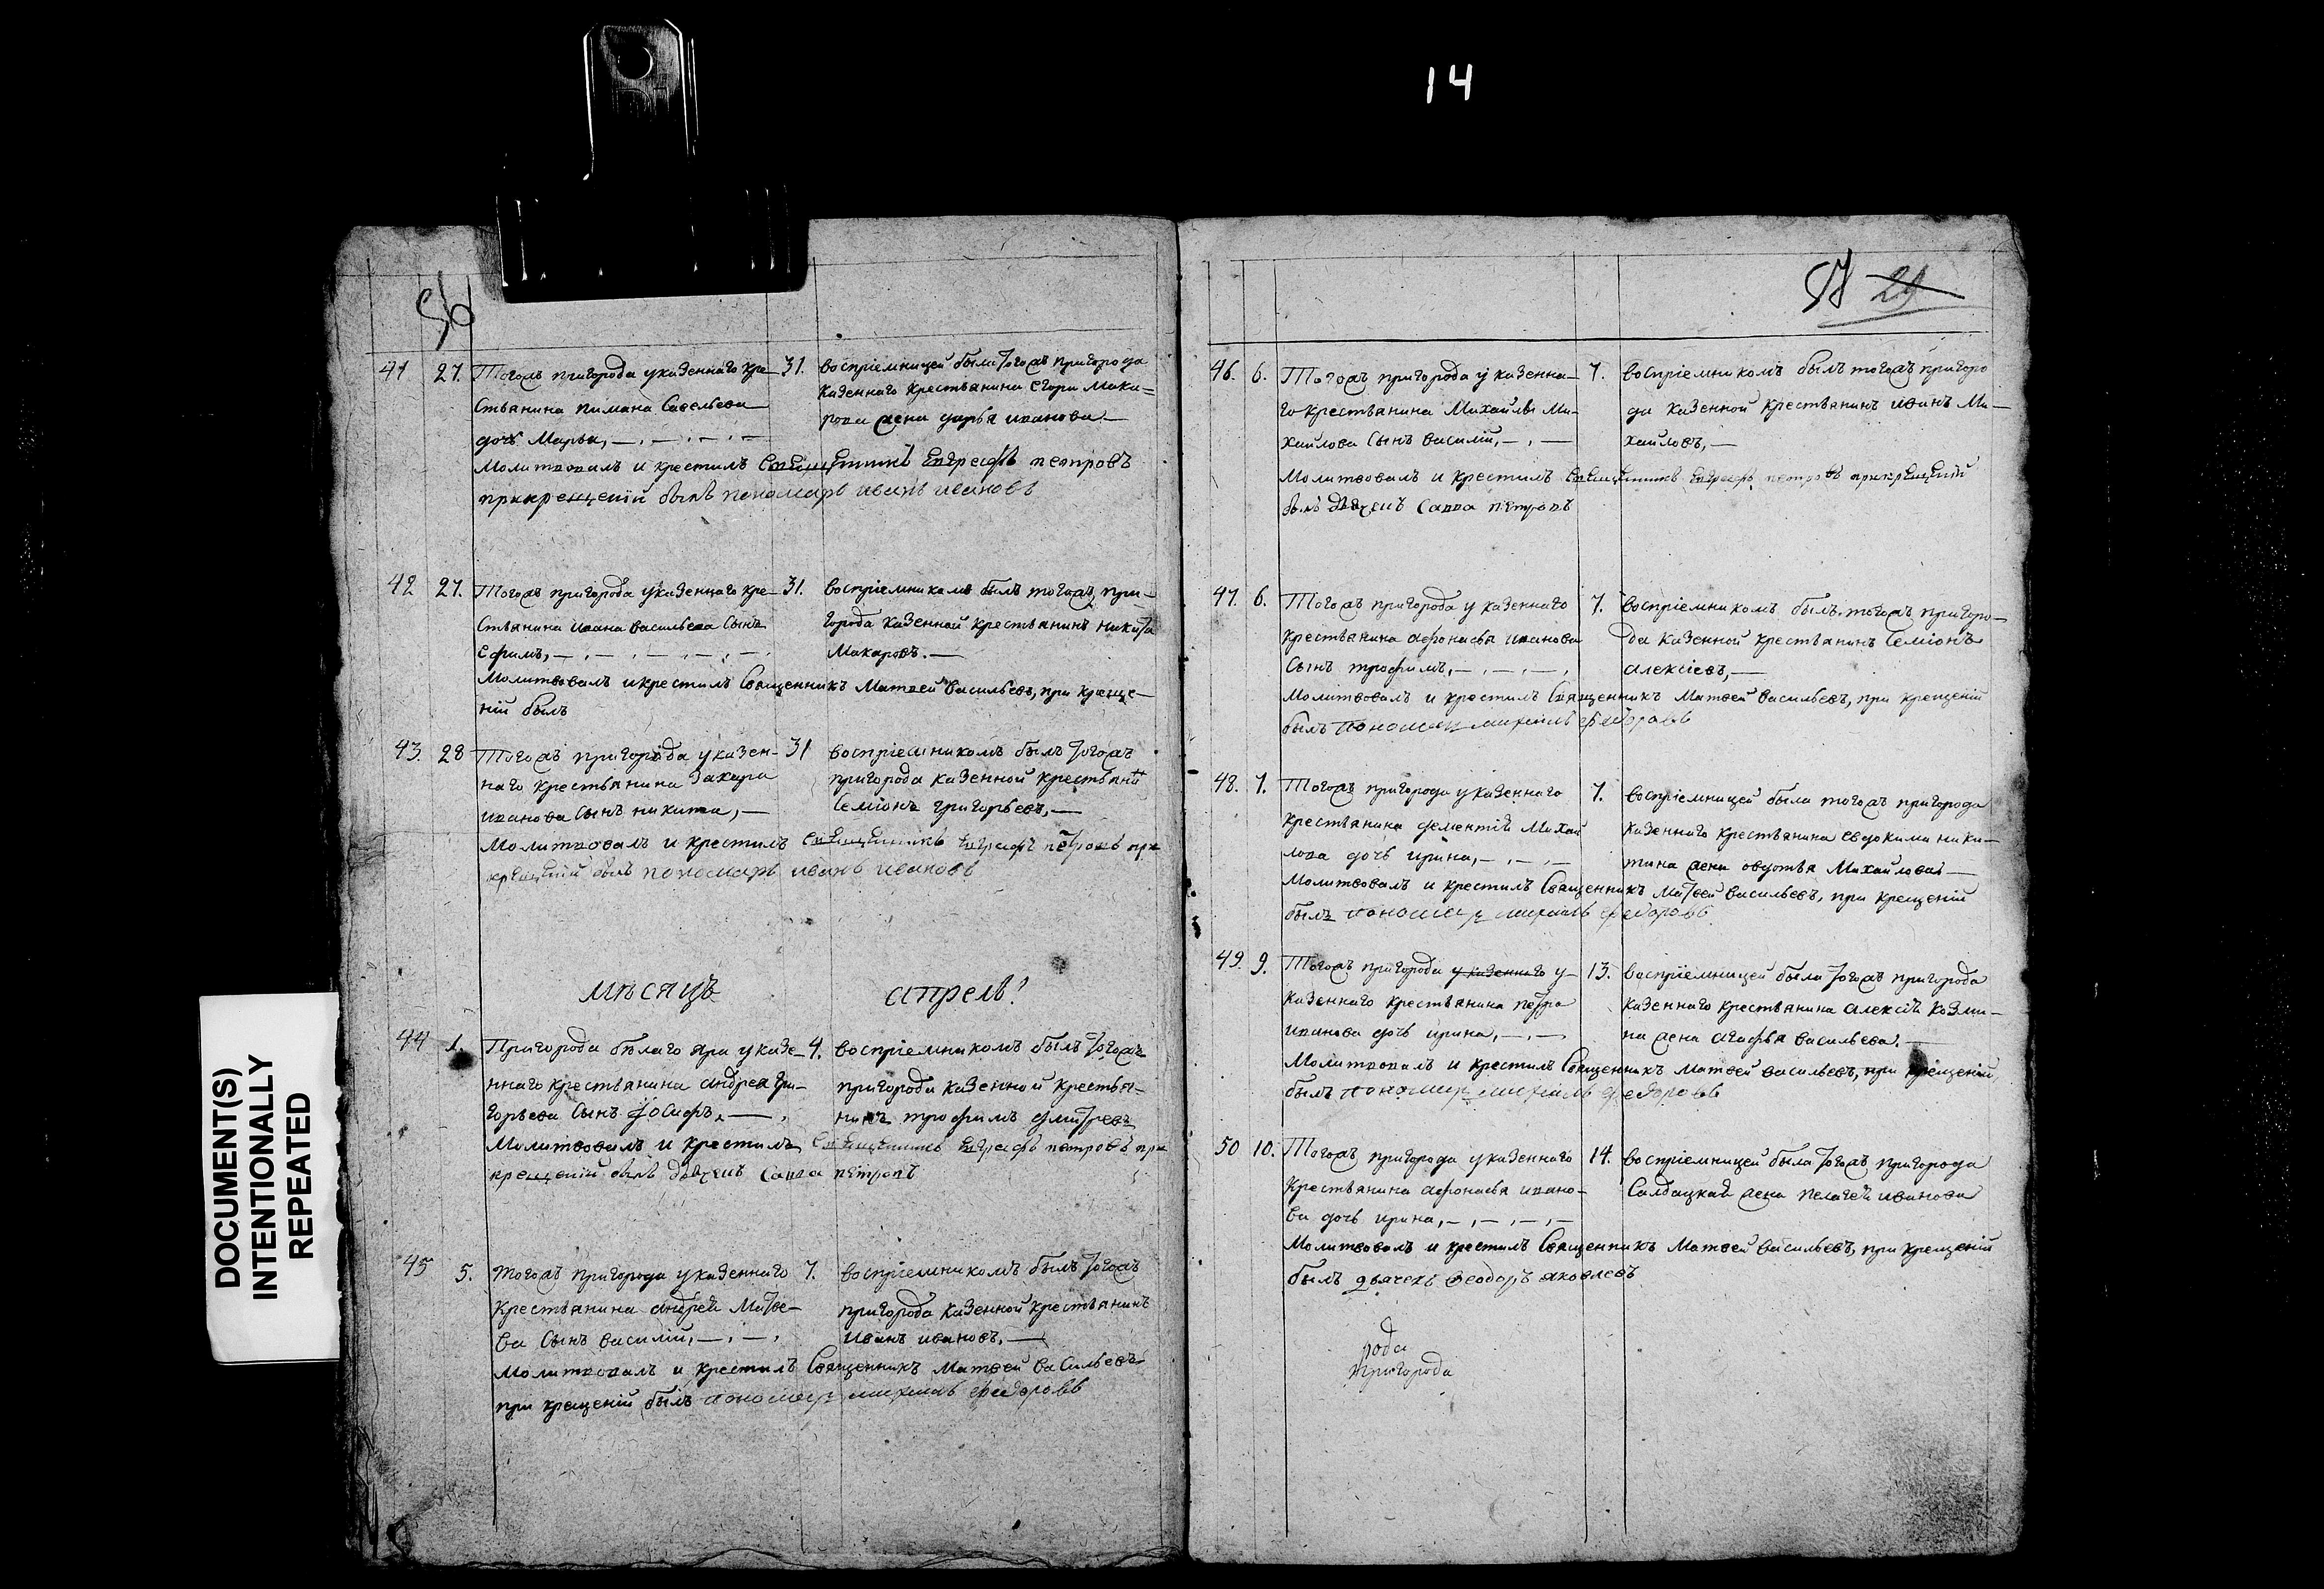 14
DOCUMENT(S)
INTENTIONALLY
REPEATED
56
41 27. Тогожъ пригорода у казеннаго кре-
стьянина Пимана Савельева
дочь Марья,
31. воспріемницей была тогожъ пригорода
казеннаго крестьянина егора Мака=
рова жена дарья иванова
Молитвовалъ и крестилъ Священникъ Евграфъ петровъ
прикрещеній былъ пономарь иванъ ивановъ
42 27. Тогожъ пригорода у казеннаго кре-
стьянина ивана васильева Сынъ
ефимъ,
31. воспріемникомъ былъ тогожъ при-
города казенной крестьянинъ никита
Макаровъ.
Молитвовалъ и крестилъ Священникъ Матвей васильевъ, при креще-
ній былъ
43. 28 Тогожъ пригорода у казен-
наго крестьянина Захара
иванова Сынъ никита,
31 воспріемникомъ былъ тогожъ
пригорода казенной крестьянинъ
Семіонъ григорьевъ,
Молитвовалъ и крестилъ Священникъ Евграфъ петровъ при
крещеній былъ пономарь иванъ ивановъ
мѣсяцъ апрель!
44 1. Пригорода бѣлаго яра у казе-
ннаго крестьянина андрея гри-
горьева Сынъ Іосифъ,
4. воспріемникомъ былъ тогожъ
пригорода казенной крестья-
нинъ трофимъ дмитревъ
Молитвовалъ и крестилъ Священникъ Евграфъ петровъ при
крещеній былъ дьячекъ Савва петровъ
45 5. Тогожъ пригорода у казеннаго
крестьянина андрей Матве-
ва Сынъ василій,
7. воспріемникомъ былъ тогожъ
пригорода казенной крестьянинъ
иванъ ивановъ.
Молитвовалъ и крестилъ Священникъ Матвей васильевъ
при крещеній былъ пономарь михаилъ федоровъ
57 29
46. 6. Тогожъ пригорода у казенна-
го крестьянина Михайлы Ми-
хайлова Сынъ василій,
7. воспріемникомъ былъ тогожъ пригоро
да казенной крестьянинъ иванъ Ми-
хайловъ,
Молитвовалъ и крестилъ Священникъ Евграфъ петровъ прикрещеній
былъ дьячекъ Савва петровъ
47. 6. Тогожъ пригорода у казеннаго
крестьянина афонасья иванова
Сынъ трофимъ,
7. воспріемникомъ былъ тогожъ пригоро-
да казенной крестьянинъ Семіонъ
алексіевъ,
Молитвовалъ и крестилъ Священникъ Матвей васильевъ, при крещеній
былъ пономарь михаилъ федоровъ
48. 7. Тогожъ пригорода у казеннаго
крестьянина дементій Михай
лова дочь ирина,
7. воспріемницей была тогожъ пригорода
казеннаго крестьянина евдокима ники-
тина жена овдотья Михайлова
Молитвовалъ и крестилъ Священникъ Матвей васильевъ, при крещеній
былъ пономарь михаилъ федоровъ
49. 9. Тогожъ пригорода у казеннаго у-
казеннаго крестьянина петра
иванова дочь ирина,
13. воспріемницей была тогожъ пригорода
казеннаго крестьянина алексій козми-
на жена агафья васильева.
Молитвовалъ и крестилъ Священникъ Матвей васильевъ, при крещеній
былъ пономарь михаилъ федоровъ
50 10. Тогожъ пригорода у казеннаго
крестьянина афонасья ивано-
ва дочь ирина,
14. воспріемницей была тогожъ пригорода
Салдацкая жена пелагей иванова
Молитвовалъ и крестилъ Священникъ Матвей васильевъ, при крещеній
былъ дьячекъ Феодоръ яковлевъ
рода
пригорода